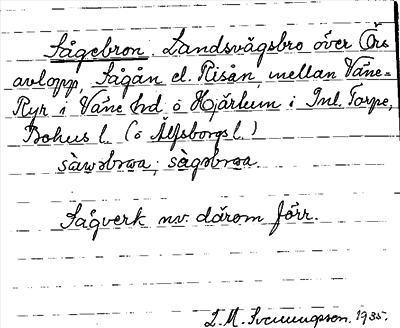 Sågebron. Landsvägsbro över Örs
avlopp, Sågån el. Risån, mellan Väne-
Ryr i Väne hd o Hjärtum i Inl. Torpe,
Bohus l. (o Älfsborgs l.)
sàwəbrωa; sàgəbrωa.
Sågverk nv. därom förr.
L. M. Svenungsson. 1935.